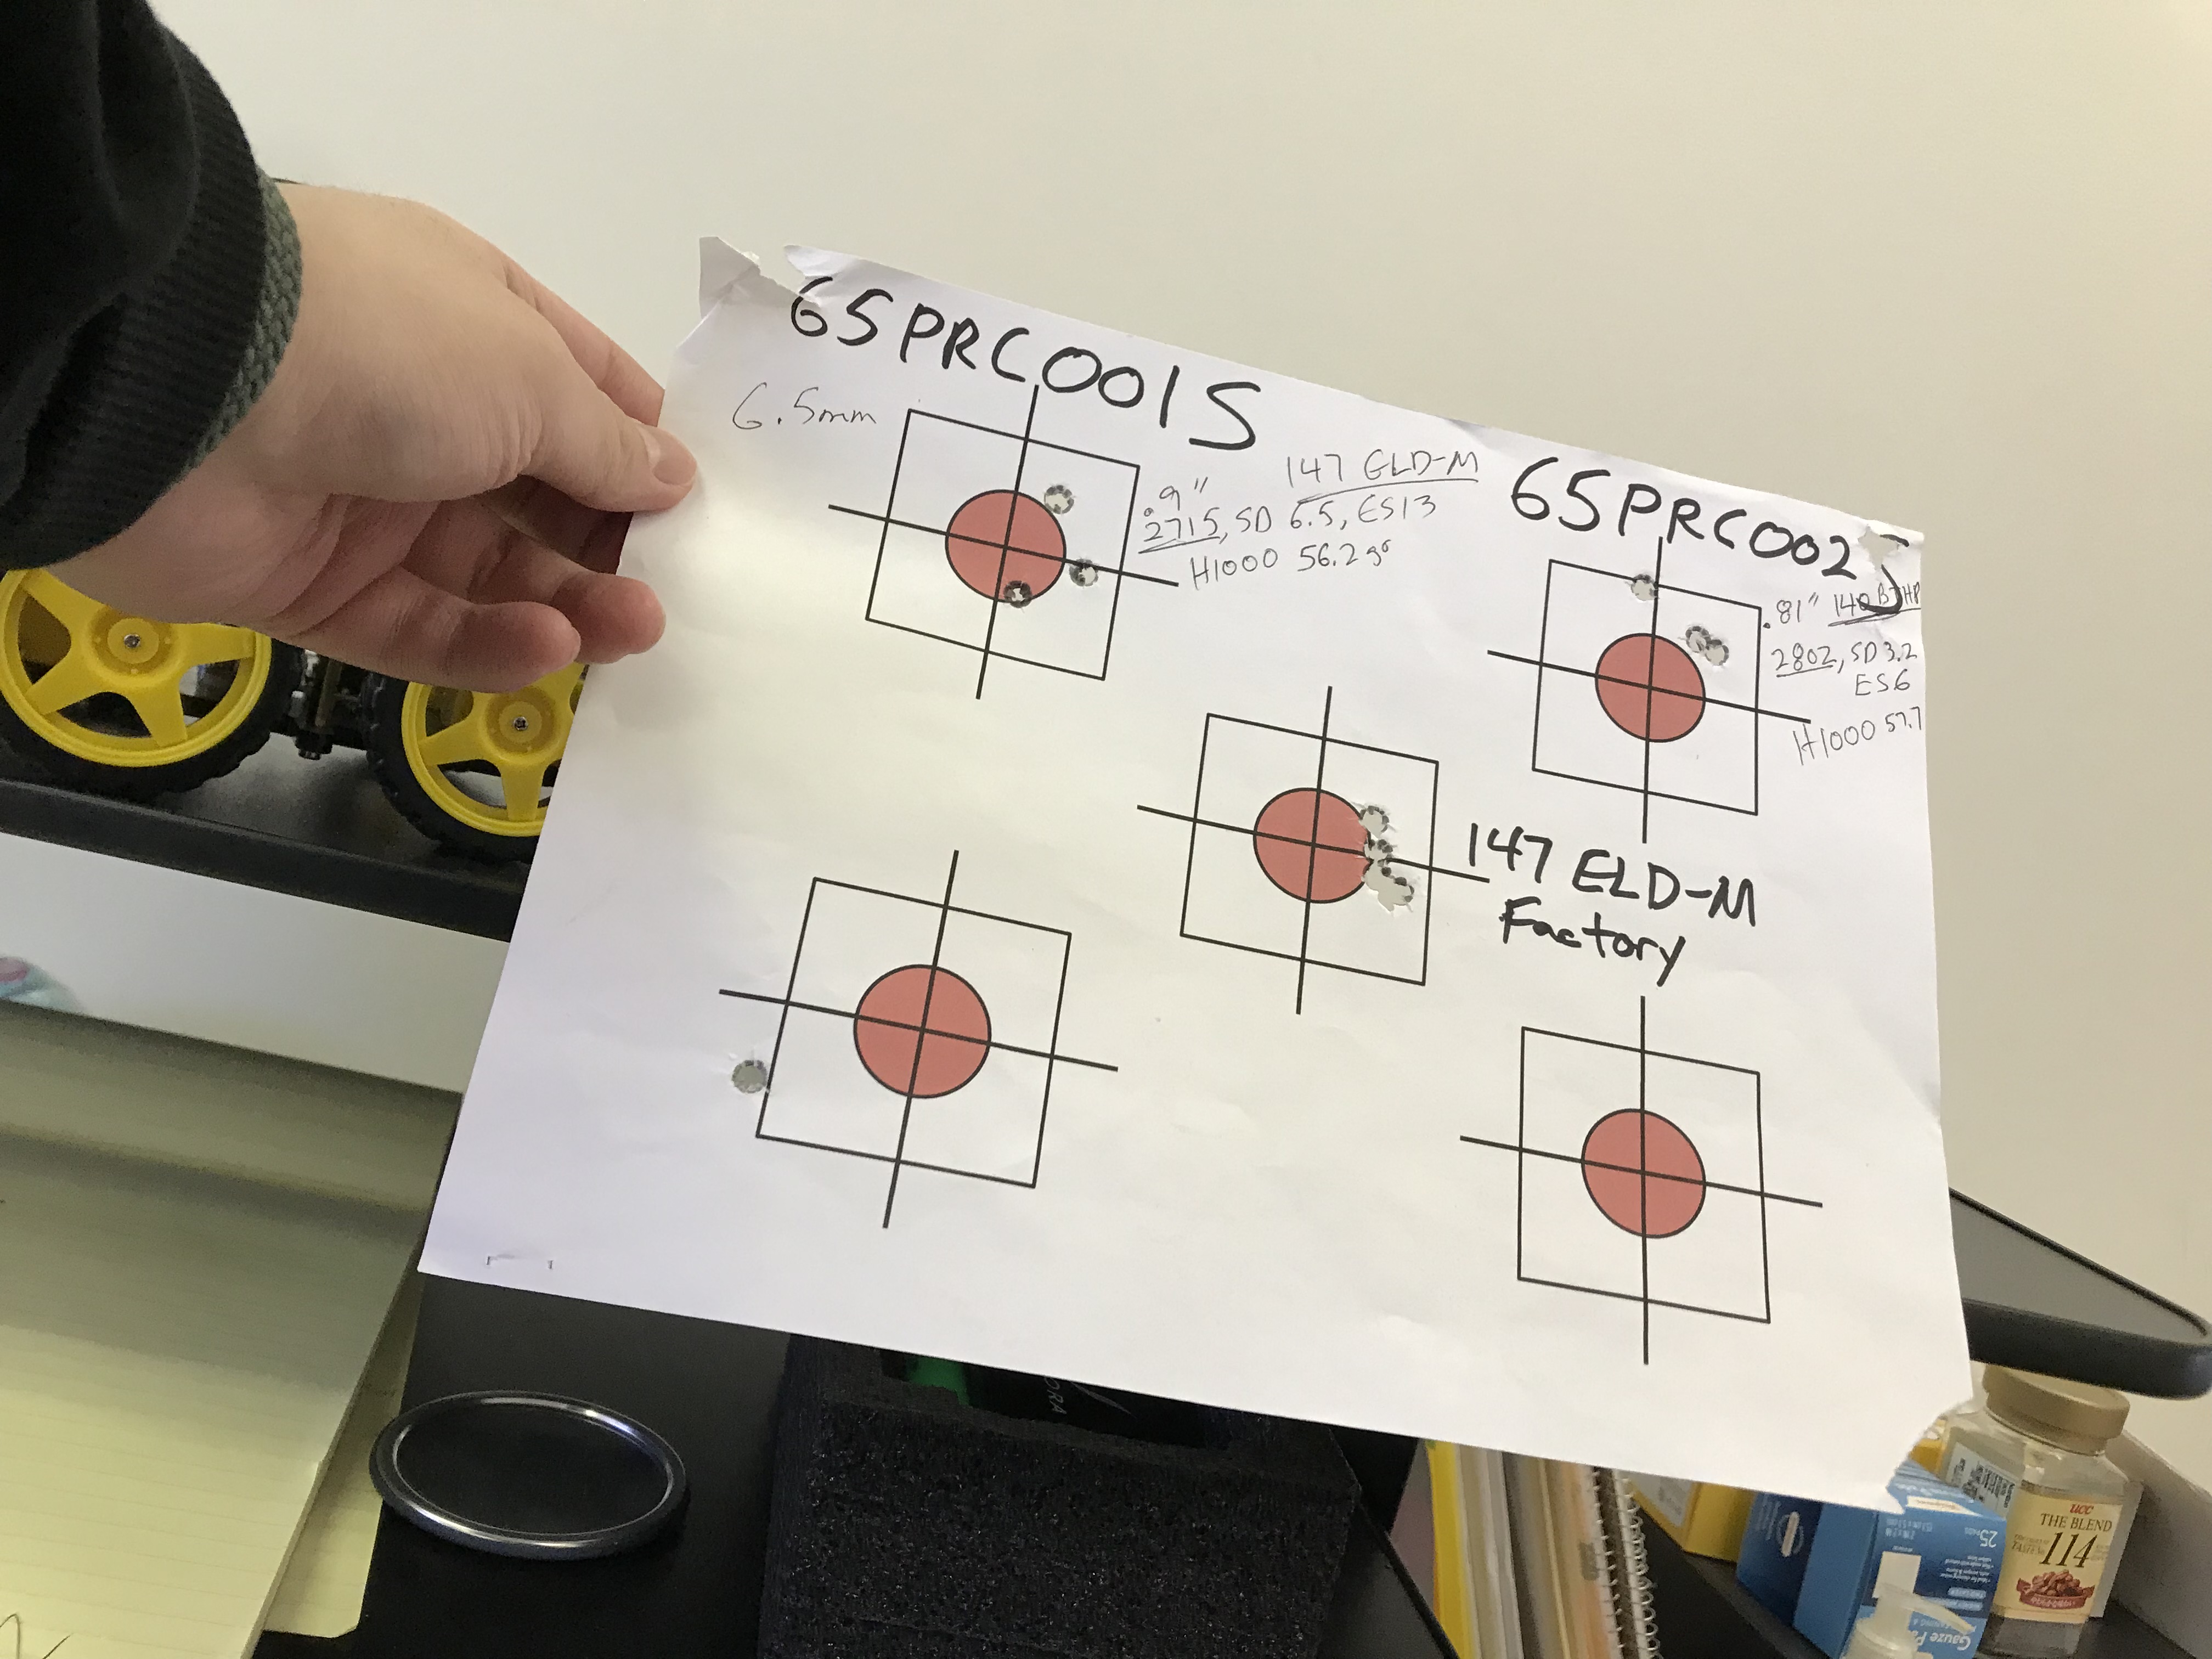 65PRC001S
6.5mm
.9"
147 ELD-M
2715, SD 6.5, ES13
H1000 56.2 gr
65PRC002S
.81" 140 BTHP
2802, SD 3.2
ES6
H1000 57.7
147 ELD-M
Factory
ucc
THE BLEND
114
25
Gauze